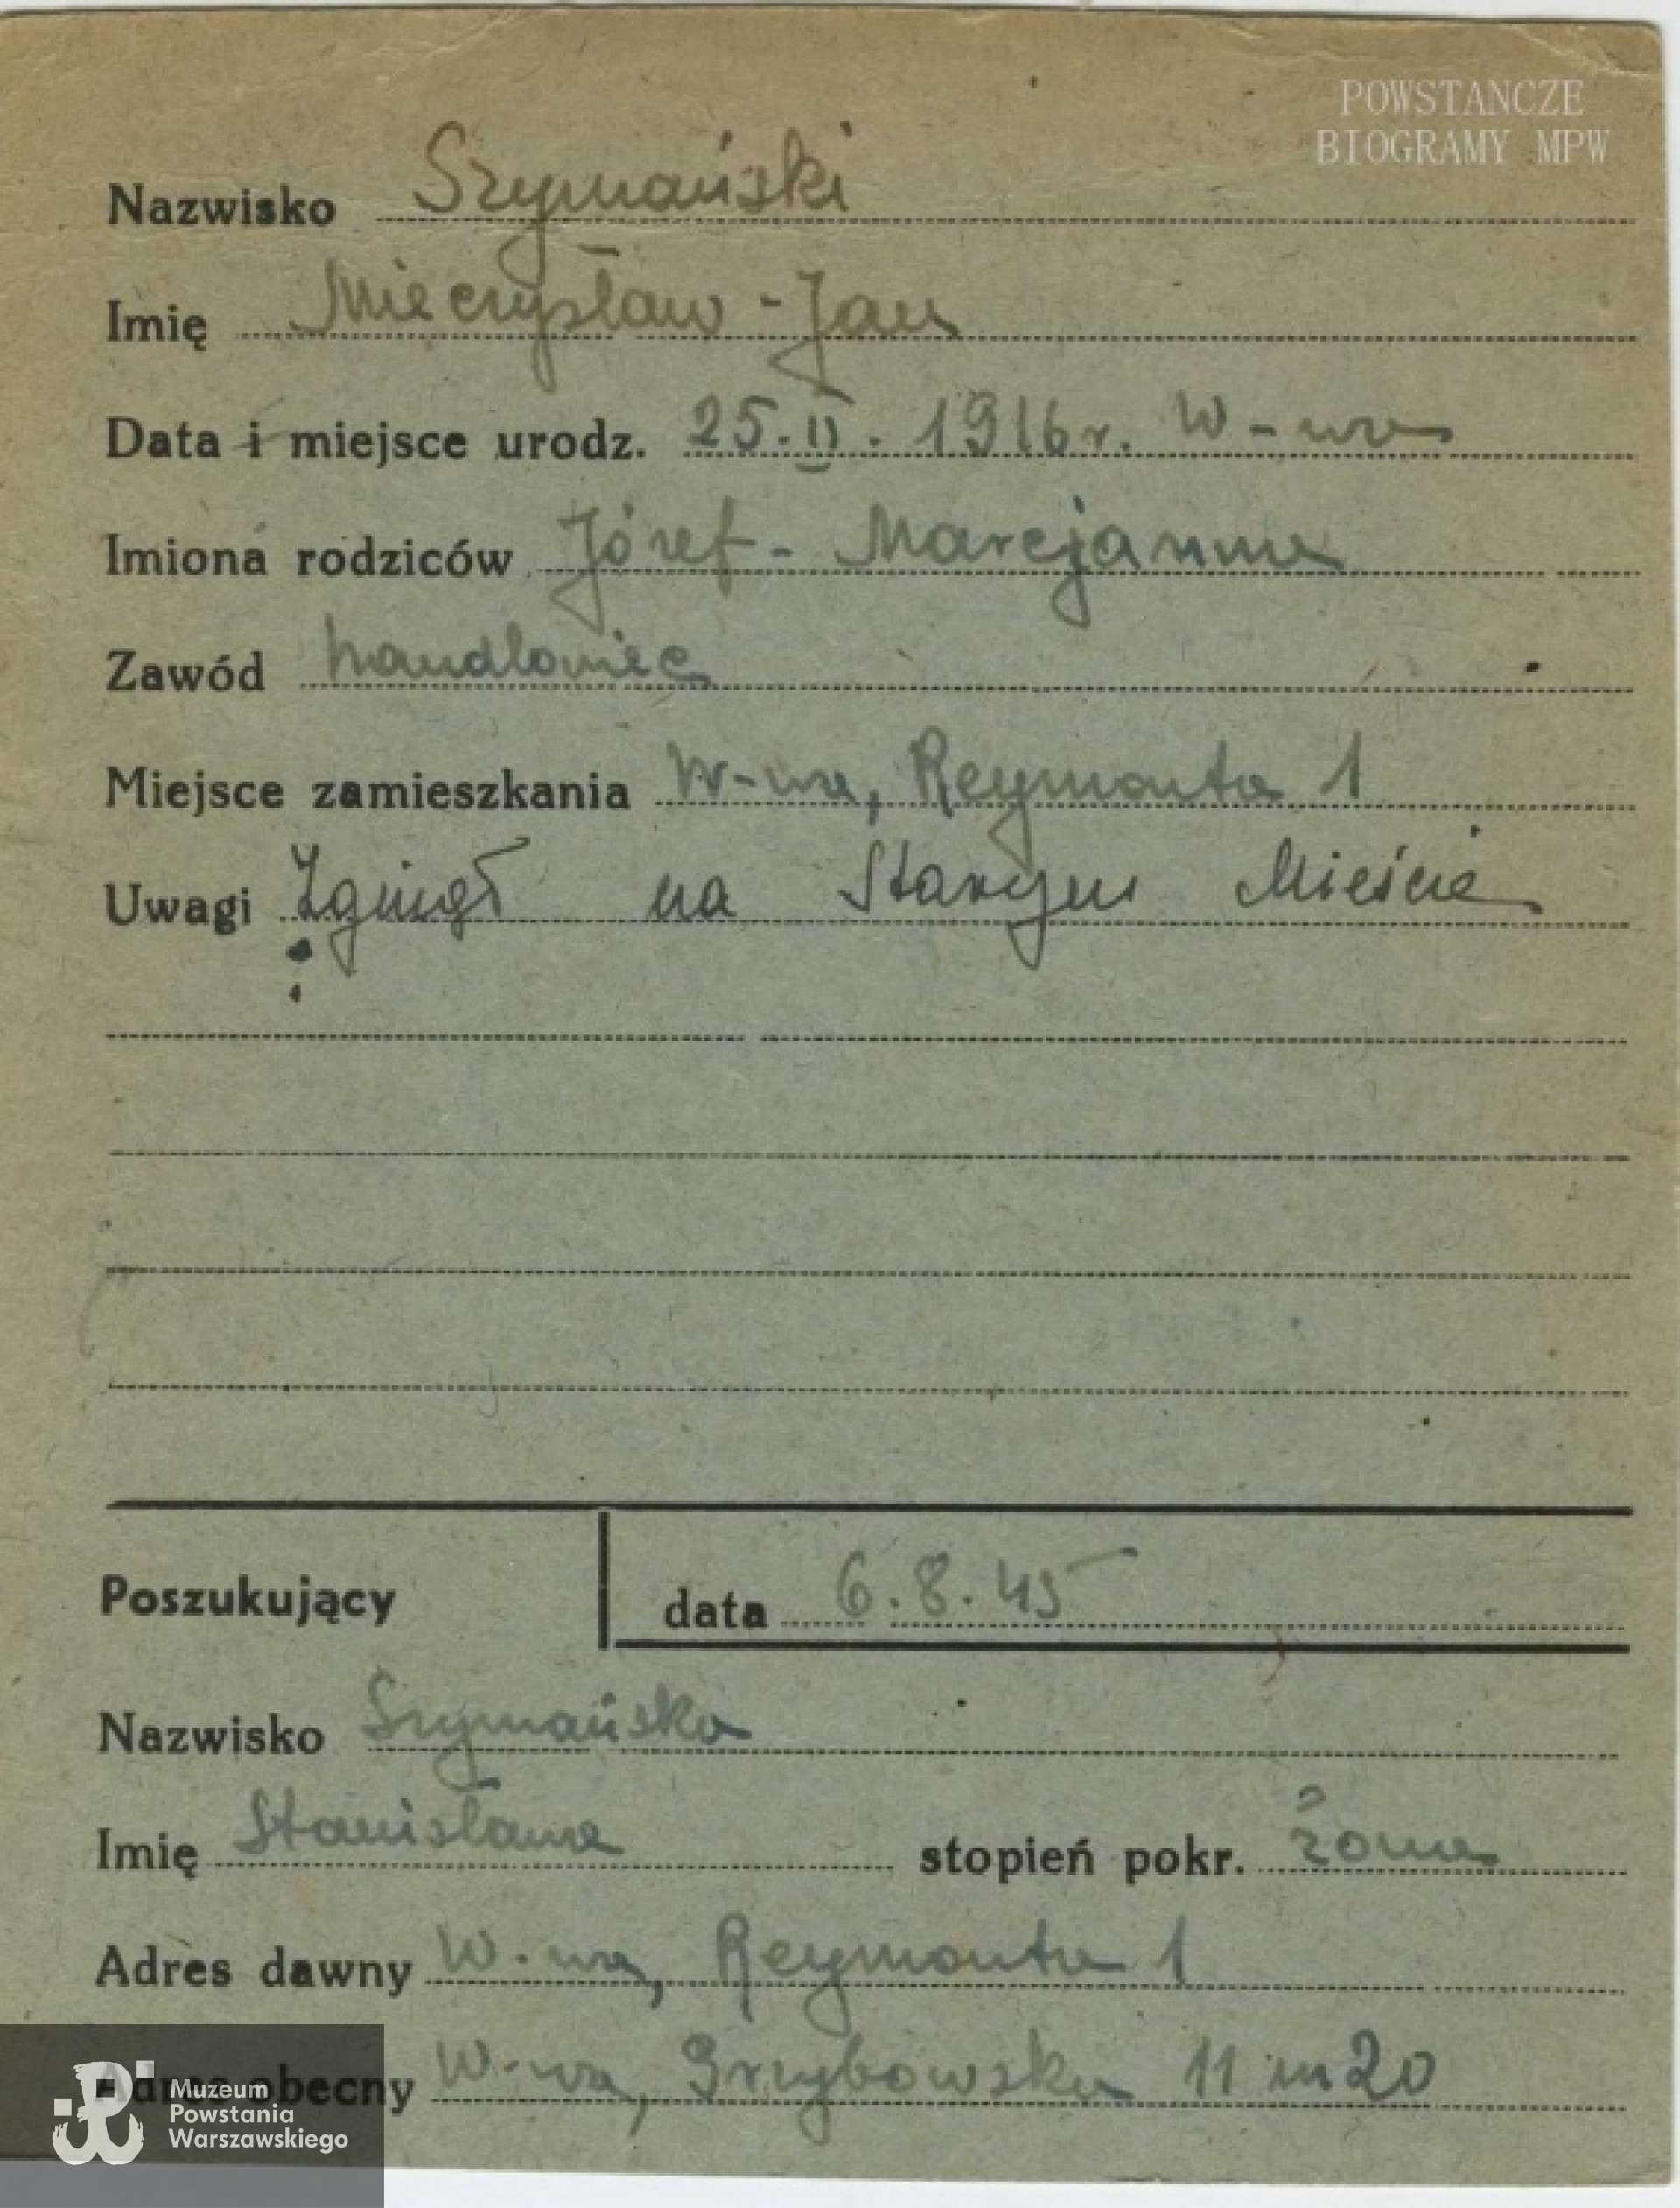 POWSTANCZE
BIOGRAMY MPW
Nazwisko Szymański
Imię Mieczysław - Jan
Data i miejsce urodz. 25.II. 1916 r. W-wa
Imiona rodziców Józef - Marcjanna
Zawód handlowiec
Miejsce zamieszkania W-wa, Reymonta 1
Uwagi Zginął na Starym Mieście
Poszukujący data 6.8.45
Nazwisko Szymańska
Imię Stanisława stopień pokr. żona
Adres dawny W-wa, Reymonta 1
Adres obecny W-wa, Grzybowska 11 m 20
Muzeum
Powstania
Warszawskiego